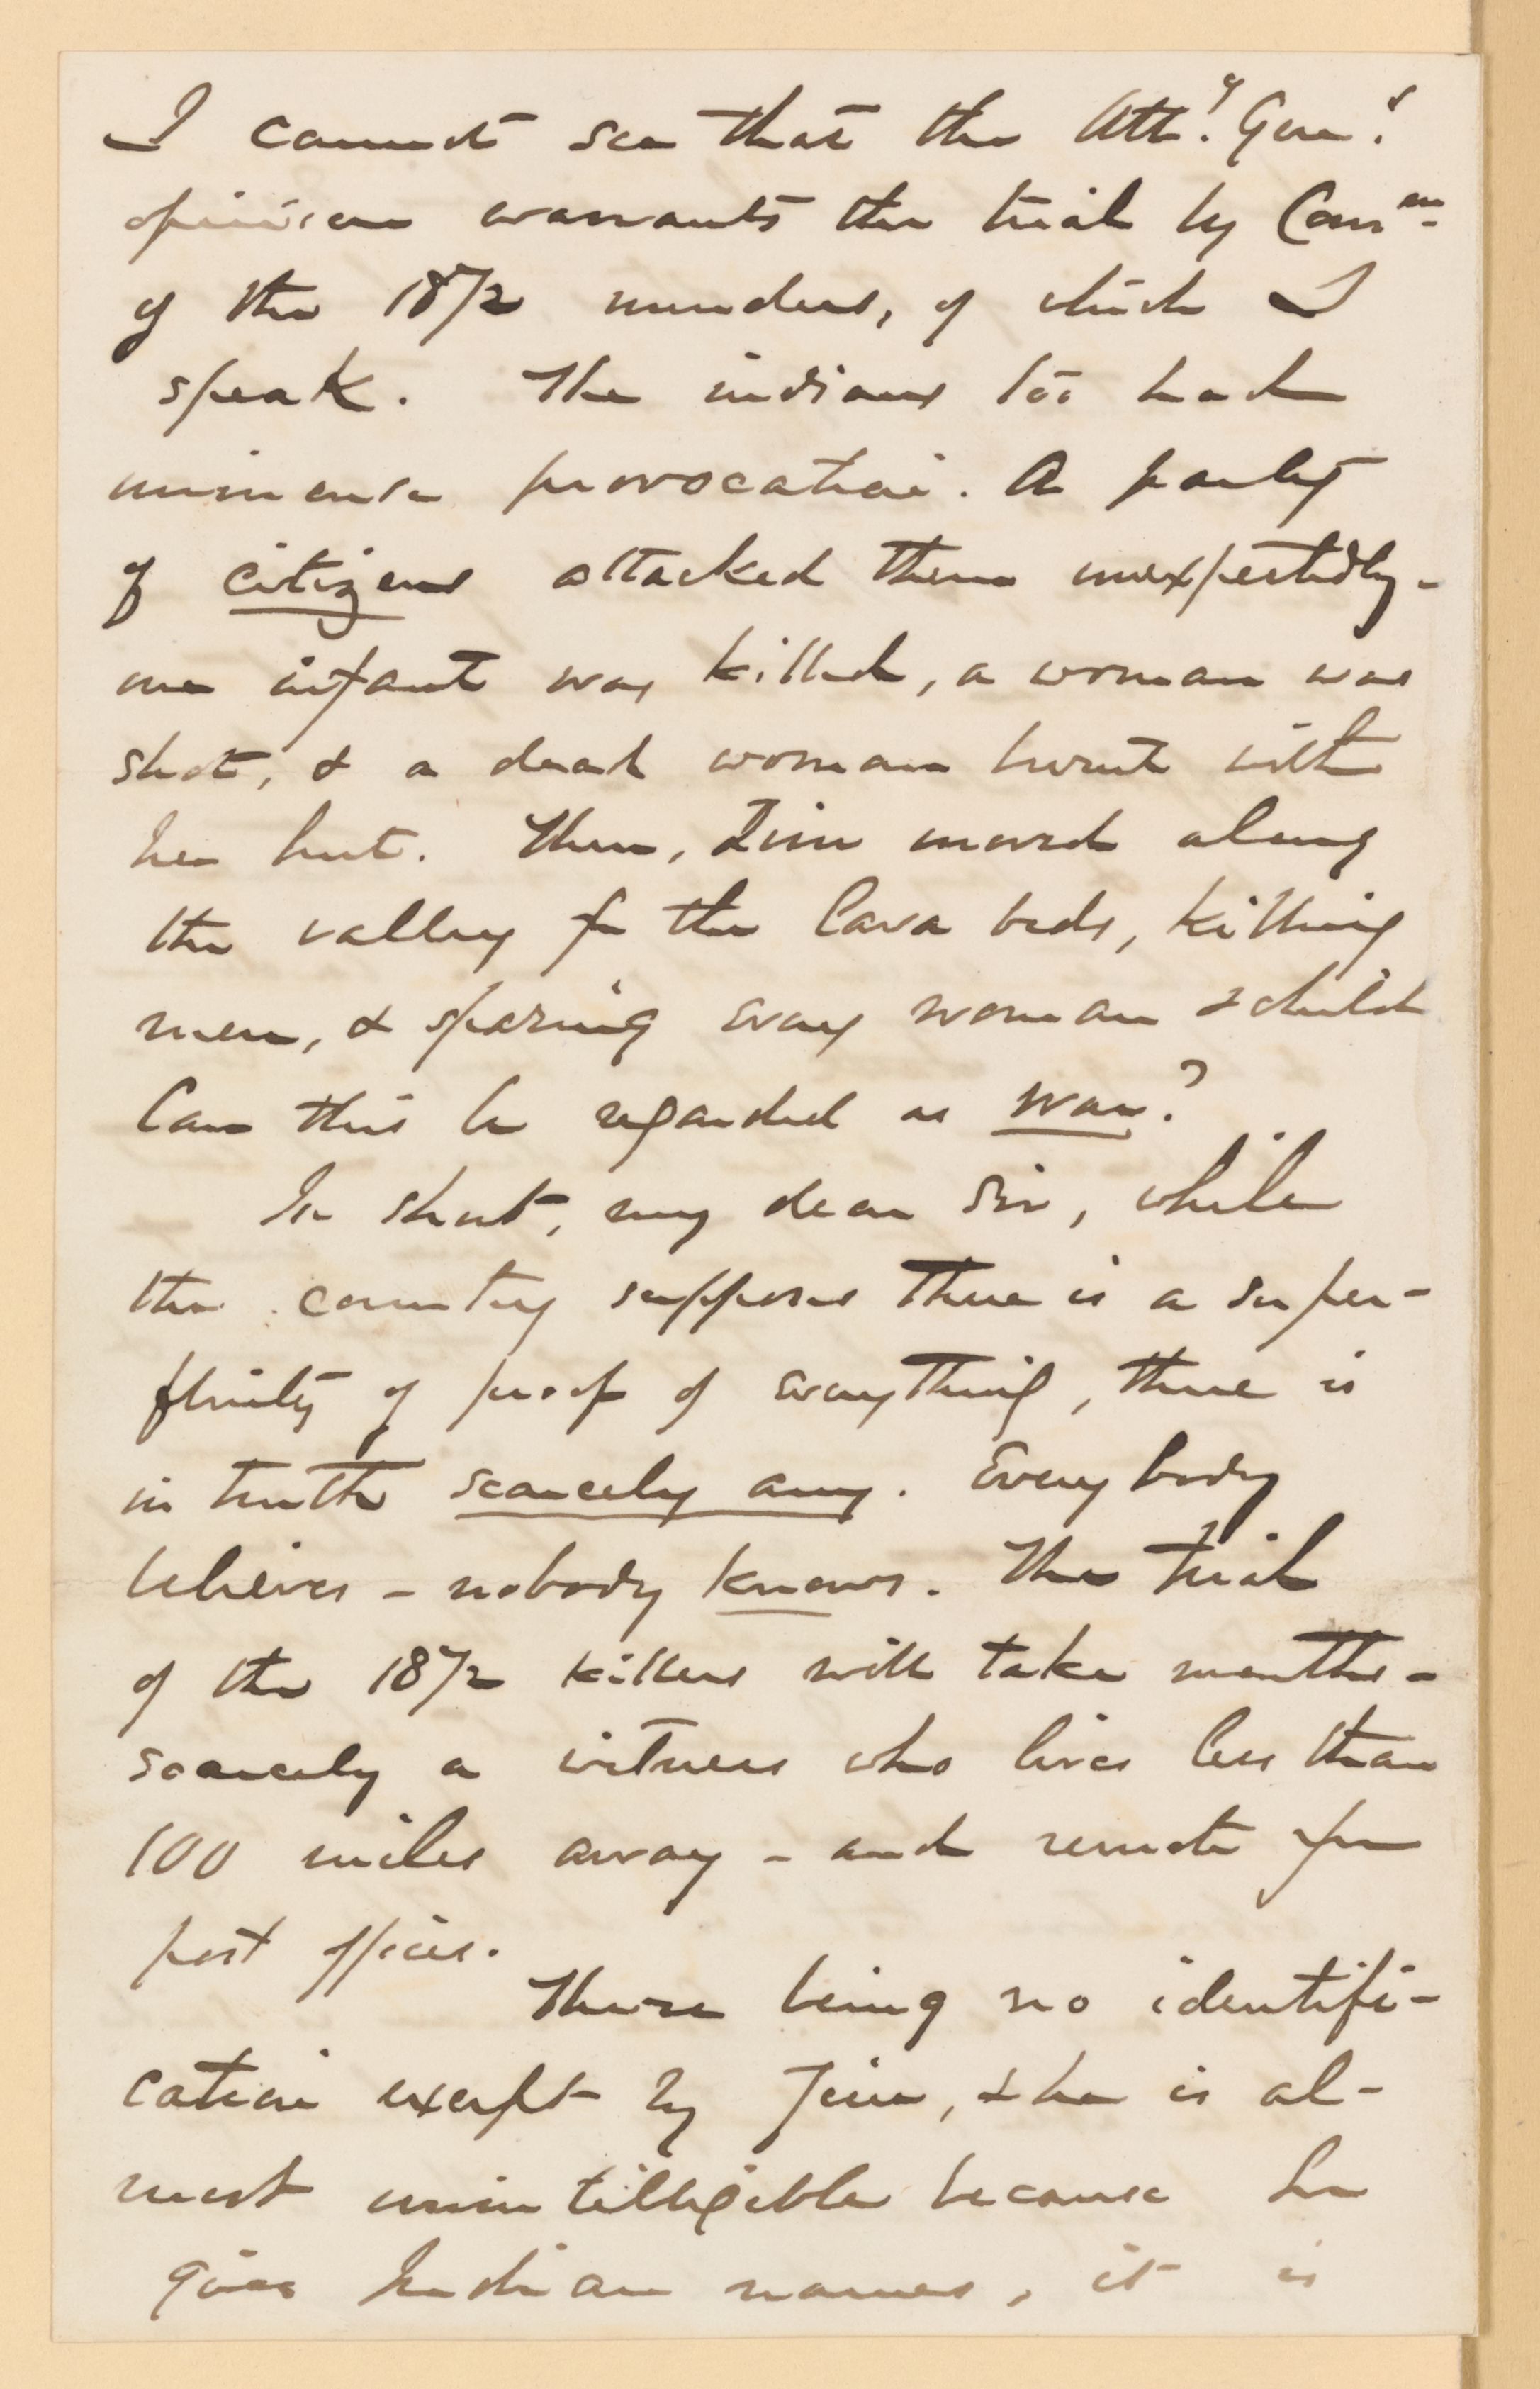 I cannot see that the Atty. Gen's
opinion warrants the trial by Comn.
of the 1872 murders, of which I
speak. The indians too had
immense provocation. A party
of citizens attacked them unexpectedly -
one infant was killed, a woman was
shot, & a dead woman burnt with
her hut. Then, Jim moved along
the valley for the Lava beds, killing
men, & sparing every woman & child
Can this be regarded as war?
In short, my dear Sir, while
the country supposes there is a super-
fluity of proof of everything, there is
in truth scarcely any. Every body
believes - nobody knows. The trial
of the 1872 killers will take months -
scarcely a witness who lives less than
100 miles away - and remote from
post offices.
There being no identifi-
cation except by Jim, & he is al-
most unintelligible because he
gives Indian names, it is